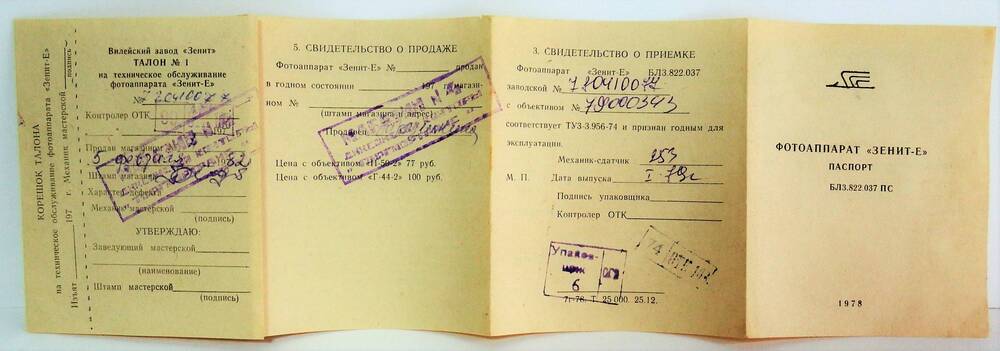 КОРЕШОК ТАЛОНА
на техническое обслуживание фотоаппарата «Зенит-Е»
Изъят 197 г. Механик мастерской
подпись
Вилейский завод «Зенит»
ТАЛОН № 1
на техническое обслуживание
фотоаппарата «Зенит-Е»
№ 720410077
Контролер ОТК
197
Продан магазином
5 февраля 82
Штамп магазина
Характер дефекта
Механик мастерской
(подпись)
УТВЕРЖДАЮ:
Заведующий мастерской
(наименование)
Штамп мастерской
(подпись)
5. СВИДЕТЕЛЬСТВО О ПРОДАЖЕ
Фотоаппарат «Зенит-Е» № продан
в годном состоянии 197 г. магази-
ном №
(штамп магазина и адрес)
Продавец
Цена с объективом «Н-50-2» 77 руб.
Цена с объективом «Г-44-2» 100 руб.
3. СВИДЕТЕЛЬСТВО О ПРИЕМКЕ
Фотоаппарат «Зенит-Е» БЛ3.822.037
заводской № 720410077
с объективом № 79000343
соответствует ТУ3-3.956-74 и признан годным для
эксплуатации.
Механик-сдатчик 253
М. П. Дата выпуска I 79г
Подпись упаковщика
Контролер ОТК
Упаков-
щик
6
74
7г-76. Т. 25.000. 25.12.
ФОТОАППАРАТ «ЗЕНИТ-Е»
ПАСПОРТ
БЛ3.822.037 ПС
1978